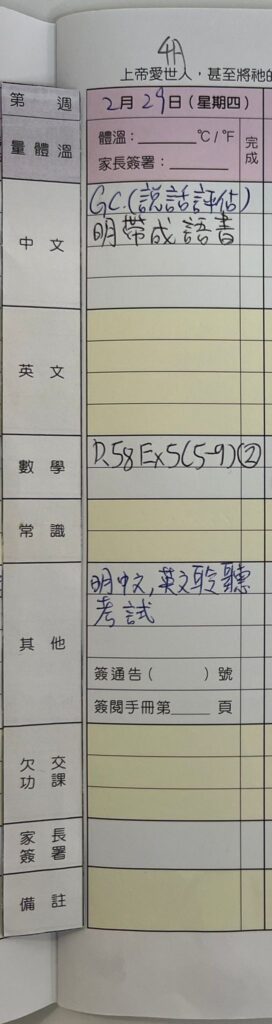 4A
上帝愛世人，甚至將祂的
第 週 2月29日(星期四)
量體溫 體溫：______°C/°F 完成
家長簽署：______
中文 GC.(說話評估)
明帶成語書
英文
數學 P.58 Ex5(5-9)②
常識
其他 明中文,英文聆聽
考試
簽通告( )號
簽閱手冊第____頁
欠交功課
家長簽署
備註